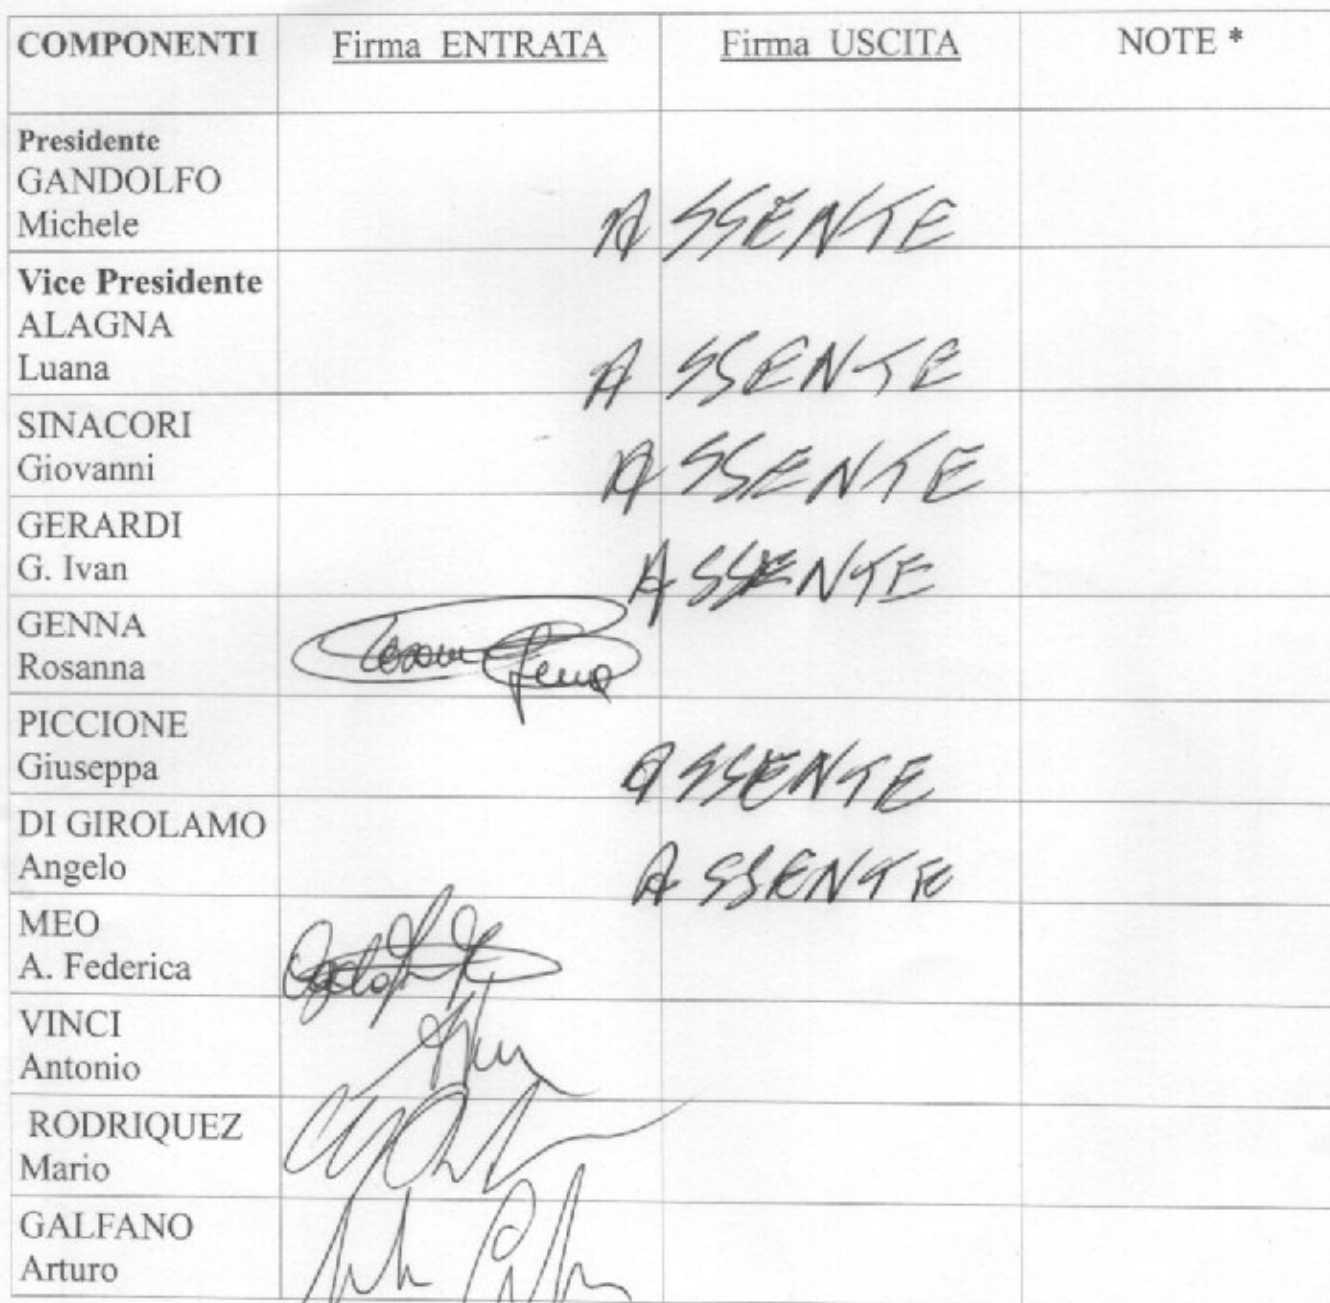 COMPONENTI Firma ENTRATA Firma USCITA NOTE *
Presidente
GANDOLFO
Michele ASSENTE
Vice Presidente
ALAGNA
Luana ASSENTE
SINACORI
Giovanni ASSENTE
GERARDI
G. Ivan ASSENTE
GENNA
Rosanna
PICCIONE
Giuseppa ASSENTE
DI GIROLAMO
Angelo ASSENTE
MEO
A. Federica
VINCI
Antonio
RODRIQUEZ
Mario
GALFANO
Arturo